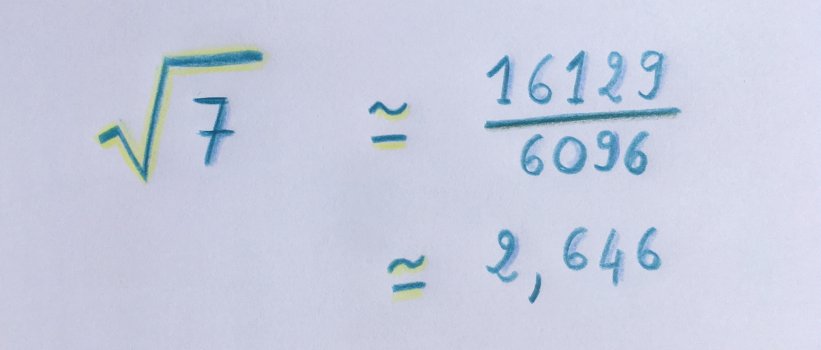 √7 ≃ 16129/6096
≃ 2,646